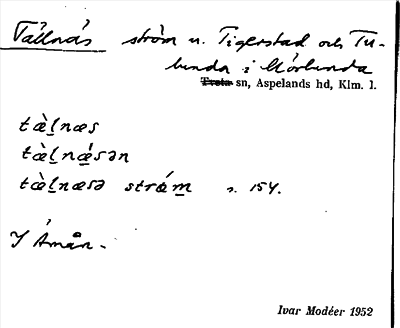 Tällnäs ström n. Tigerstad och Tu-
lunda i Mörlunda
Tveta sn, Aspelands hd, Klm. l.
tæ̀l̠næs
tæ̀l̠nǽ̠sən
tæ̀l̠næsə strǿm̠ s. 154.
Y Ámån.
Ivar Modéer 1952